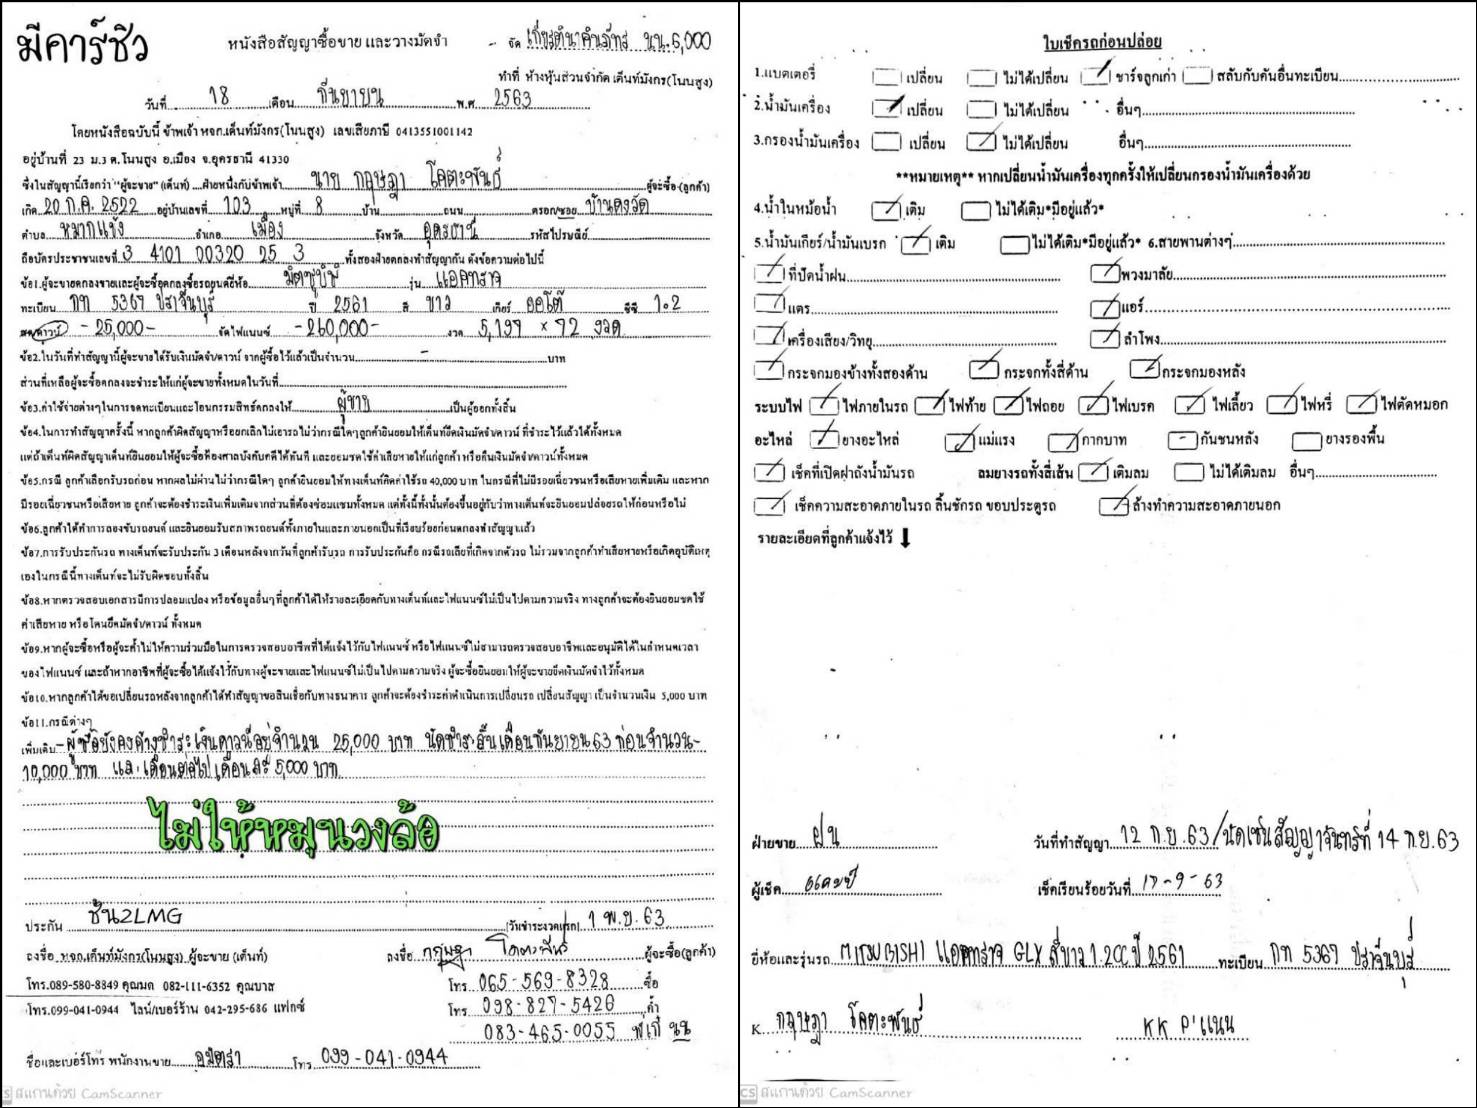 มีคาร์ชัว
หนังสือสัญญาซื้อขาย และวางมัดจำ
- จัด เกียรตินาคินภัทร นน.5,000
ทำที่ ห้างหุ้นส่วนจำกัด เต็นท์มังกร(โนนสูง)
วันที่ 18 เดือน กันยายน พ.ศ 2563
โดยหนังสือฉบับนี้ ข้าพเจ้า หจก.เต็นท์มังกร(โนนสูง) เลขเสียภาษี 0413551001142
อยู่บ้านที่ 23 ม.3 ต.โนนสูง อ.เมือง จ.อุดรธานี 41330
ซึ่งในสัญญานี้เรียกว่า "ผู้จะขาย" (เต็นท์) ฝ่ายหนึ่งกับข้าพเจ้า นาย กฤษฎา โคตะพันธ์ ผู้จะซื้อ(ลูกค้า)
เกิด 20 ก.ค. 2522 อยู่บ้านเลขที่ 103 หมู่ที่ 8 บ้าน ถนน ตรอก/ซอย บ้านดงวัด
ตำบล หมากแข้ง อำเภอ เมือง จังหวัด อุดรธานี รหัสไปรษณีย์
ถือบัตรประชาชนเลขที่ 3 4101 00320 25 3 ทั้งสองฝ่ายตกลงทำสัญญากัน ดังข้อความต่อไปนี้
ข้อ1.ผู้จะขายตกลงขายและผู้จะซื้อตกลงซื้อรถยนต์ยี่ห้อ มิตซูบิชิ รุ่น แอททราจ
ทะเบียน กท 5367 ปราจีนบุรี ปี 2561 สี ขาว เกียร์ ออโต้ ซีซี 1.2
สด/ดาวน์ -25,000- จัดไฟแนนซ์ -260,000- งวด 5,199 × 72 งวด
ข้อ2.ในวันที่ทำสัญญานี้ผู้จะขายได้รับเงินมัดจำ/ดาวน์ จากผู้ซื้อไว้แล้วเป็นจำนวน - บาท
ส่วนที่เหลือผู้จะซื้อตกลงจะชำระให้แก่ผู้จะขายทั้งหมดในวันที่
ข้อ3.ค่าใช้จ่ายต่างๆในการจดทะเบียนและโอนกรรมสิทธ์ตกลงให้ ผู้ขาย เป็นผู้ออกทั้งสิ้น
ข้อ4.ในการทำสัญญาครั้งนี้ หากลูกค้าผิดสัญญาหรือยกเลิกไม่เอารถ ไม่ว่ากรณีใดๆลูกค้ายินยอมให้เต็นท์ยึดเงินมัดจำ/ดาวน์ ที่ชำระไว้แล้วได้ทั้งหมด
แต่ถ้าเต็นท์ผิดสัญญาเต็นท์ยินยอมให้ผู้จะซื้อฟ้องศาลบังคับคดีได้ทันที และยอมชดใช้ค่าเสียหายให้แก่ลูกค้า หรือคืนเงินมัดจำ/ดาวน์ทั้งหมด
ข้อ5.กรณี ลูกค้าเลือกรับรถก่อน หากผลไม่ผ่านไม่ว่ากรณีใดๆ ลูกค้ายินยอมให้ทางเต็นท์คิดค่าใช้รถ 40,000 บาท ในกรณีที่ไม่มีรอยเฉี่ยวชนหรือเสียหายเพิ่มเติม และหาก
มีรอยเฉี่ยวชนหรือเสียหาย ลูกค้าจะต้องชำระเงินเพิ่มเติมจากส่วนที่ต้องซ่อมแซมทั้งหมด แต่ทั้งนี้ทั้งนั้นต้องขึ้นอยู่กับว่าทางเต็นท์จะยินยอมปล่อยรถให้ก่อนหรือไม่
ข้อ6.ลูกค้าได้ทำการลองขับรถยนต์ และยินยอมรับสภาพรถยนต์ทั้งภายในและภายนอกเป็นที่เรียบร้อยก่อนตกลงทำสัญญาแล้ว
ข้อ7.การรับประกันรถ ทางเต็นท์จะรับประกัน 3 เดือนหลังจากวันที่ลูกค้ารับรถ การรับประกันคือ กรณีรถเสียที่เกิดจากตัวรถ ไม่รวมจากลูกค้าทำเสียหายหรือเกิดอุบัติเหตุ
เองในกรณีนี้ทางเต็นท์จะไม่รับผิดชอบทั้งสิ้น
ข้อ8.หากตรวจสอบเอกสารมีการปลอมแปลง หรือข้อมูลอื่นๆที่ลูกค้าได้ให้รายละเอียดกับทางเต็นท์และไฟแนนซ์ไม่เป็นไปตามความจริง ทางลูกค้าจะต้องยินยอมชดใช้
ค่าเสียหาย หรือโดนยึดมัดจำ/ดาวน์ ทั้งหมด
ข้อ9.หากผู้จะซื้อหรือผู้จะค้ำไม่ให้ความร่วมมือในการตรวจสอบอาชีพที่ได้แจ้งไว้กับไฟแนนซ์ หรือไฟแนนซ์ไม่สามารถตรวจสอบอาชีพและอนุมัติได้ในกำหนดเวลา
ของไฟแนนซ์ และถ้าหากอาชีพที่ผู้จะซื้อได้แจ้งไว้กับทางผู้จะขายและไฟแนนซ์ไม่เป็นไปตามความจริง ผู้จะซื้อยินยอมให้ผู้จะขายยึดเงินมัดจำไว้ทั้งหมด
ข้อ10.หากลูกค้าได้ขอเปลี่ยนรถหลังจากลูกค้าได้ทำสัญญาขอสินเชื่อกับทางธนาคาร ลูกค้าจะต้องชำระค่าดำเนินการเปลี่ยนรถ เปลี่ยนสัญญา เป็นจำนวนเงิน 5,000 บาท
ข้อ11.กรณีต่างๆ
เพิ่มเติม - ผู้ซื้อยังคงค้างชำระเงินดาวน์อยู่จำนวน 25,000 บาท นัดชำระสิ้นเดือนกันยายน 63 ก่อนจำนวน-
10,000 บาท และเดือนต่อไปเดือนละ 5,000 บาท
ไม่ให้หมุนวงล้อ
ประกัน ชั้น2LMG (วันชำระงวดแรก) 1 พ.ย. 63
ลงชื่อ หจก.เต็นท์มังกร(โนนสูง) ผู้จะขาย (เต็นท์) ลงชื่อ กฤษฎา โคตะพันธ์ ผู้จะซื้อ(ลูกค้า)
โทร.089-580-8849 คุณมด 082-111-6352 คุณบาส โทร 065-569-8328 ซื้อ
โทร.099-041-0944 ไลน์/เบอร์ร้าน 042-295-686 แฟกซ์ โทร 098-827-5426 ค้ำ
083-465-0055
ชื่อและเบอร์โทร พนักงานขาย อมิตรา โทร 099-041-0944
CS สแกนด้วย CamScanner
ใบเช็ครถก่อนปล่อย
1.แบตเตอรี่ เปลี่ยน ไม่ได้เปลี่ยน ชาร์จลูกเก่า สลับกับคันอื่นทะเบียน
2.น้ำมันเครื่อง เปลี่ยน ไม่ได้เปลี่ยน อื่นๆ
3.กรองน้ำมันเครื่อง เปลี่ยน ไม่ได้เปลี่ยน อื่นๆ
**หมายเหตุ** หากเปลี่ยนน้ำมันเครื่องทุกครั้งให้เปลี่ยนกรองน้ำมันเครื่องด้วย
4.น้ำในหม้อน้ำ เติม ไม่ได้เติม*มีอยู่แล้ว*
5.น้ำมันเกียร์/น้ำมันเบรก เติม ไม่ได้เติม*มีอยู่แล้ว* 6.สายพานต่างๆ
ที่ปัดน้ำฝน พวงมาลัย
แตร แอร์
เครื่องเสียง/วิทยุ ลำโพง
กระจกมองข้างทั้งสองด้าน กระจกทั้งสี่ด้าน กระจกมองหลัง
ระบบไฟ ไฟภายในรถ ไฟท้าย ไฟถอย ไฟเบรค ไฟเลี้ยว ไฟหรี่ ไฟตัดหมอก
อะไหล่ ยางอะไหล่ แม่แรง กากบาท กันชนหลัง ยางรองพื้น
เช็คที่เปิดฝาถังน้ำมันรถ ลมยางรถทั้งสี่เส้น เติมลม ไม่ได้เติมลม อื่นๆ
เช็คความสะอาดภายในรถ ลิ้นชักรถ ขอบประตูรถ ล้างทำความสะอาดภายนอก
รายละเอียดที่ลูกค้าแจ้งไว้
ฝ่ายขาย ฝน วันที่ทำสัญญา 12 ก.ย. 63/นัดเซ็นสัญญาจันทร์ที่ 14 ก.ย. 63
ผู้เช็ค เช็คเรียบร้อยวันที่ 17-9-63
ยี่ห้อและรุ่นรถ MITSUBISHI แอททราจ GLX สีขาว 1.2CC ปี 2561 ทะเบียน กท 5367 ปราจีนบุรี
K กฤษฎา โคตะพันธ์ KK P'แนน
CS สแกนด้วย CamScanner